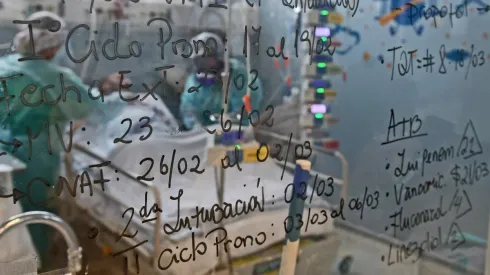 I° Ciclo Prono: 17 al 19/02
Fecha Ext: 2 /02
→ MV: 23 26/02
→ CNAF: 26/02 al 02/03
• 2da Intubación: 02/03
II Ciclo Prono: 03/03 al 06/03
Propofol →
• TQT=#8
ATB
• Imipenem
• Vancomic.
• Fluconazol
• Linezolid